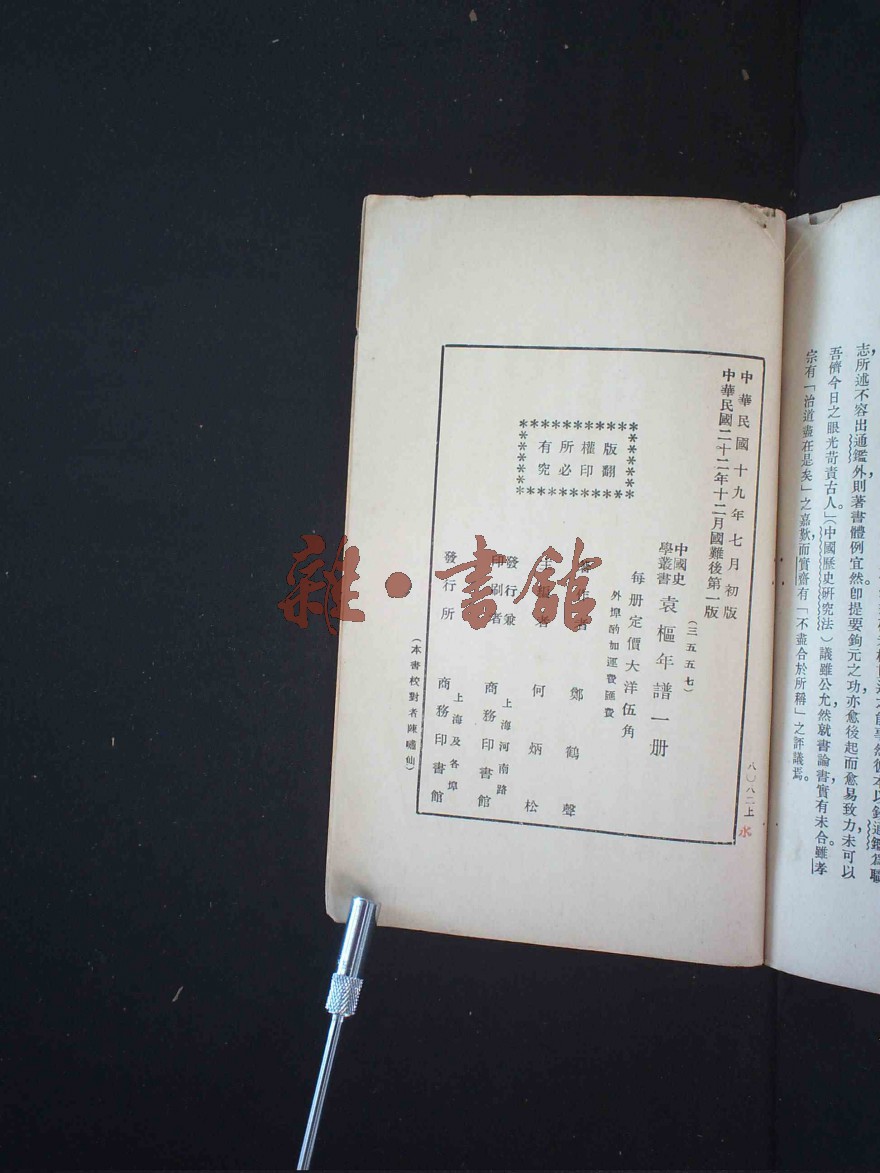 志所述不容出通鑑外,則著書體例宜然,卽提要鉤元之功,亦愈後起而愈易致力,未可以
吾儕今日之眼光苛責古人。」(中國歷史研究法)議雖公允,然就書論書,實有未合。雖孝
宗有「治道盡在是矣」之嘉歎,而實齋有「不盡合於所稱」之評議焉。
中華民國十九年七月初版
中華民國二十二年十二月國難後第一版
(三五五七)
中國史
學叢書 袁樞年譜一册
每册定價大洋伍角
外埠酌加運費匯費
版權所有
翻印必究
著作者 鄭鶴聲
主編者 何炳松
發行兼
印刷者 上海河南路
商務印書館
發行所 上海及各埠
商務印書館
(本書校對者陳嘯仙)
八〇八二上 水
雜·書館